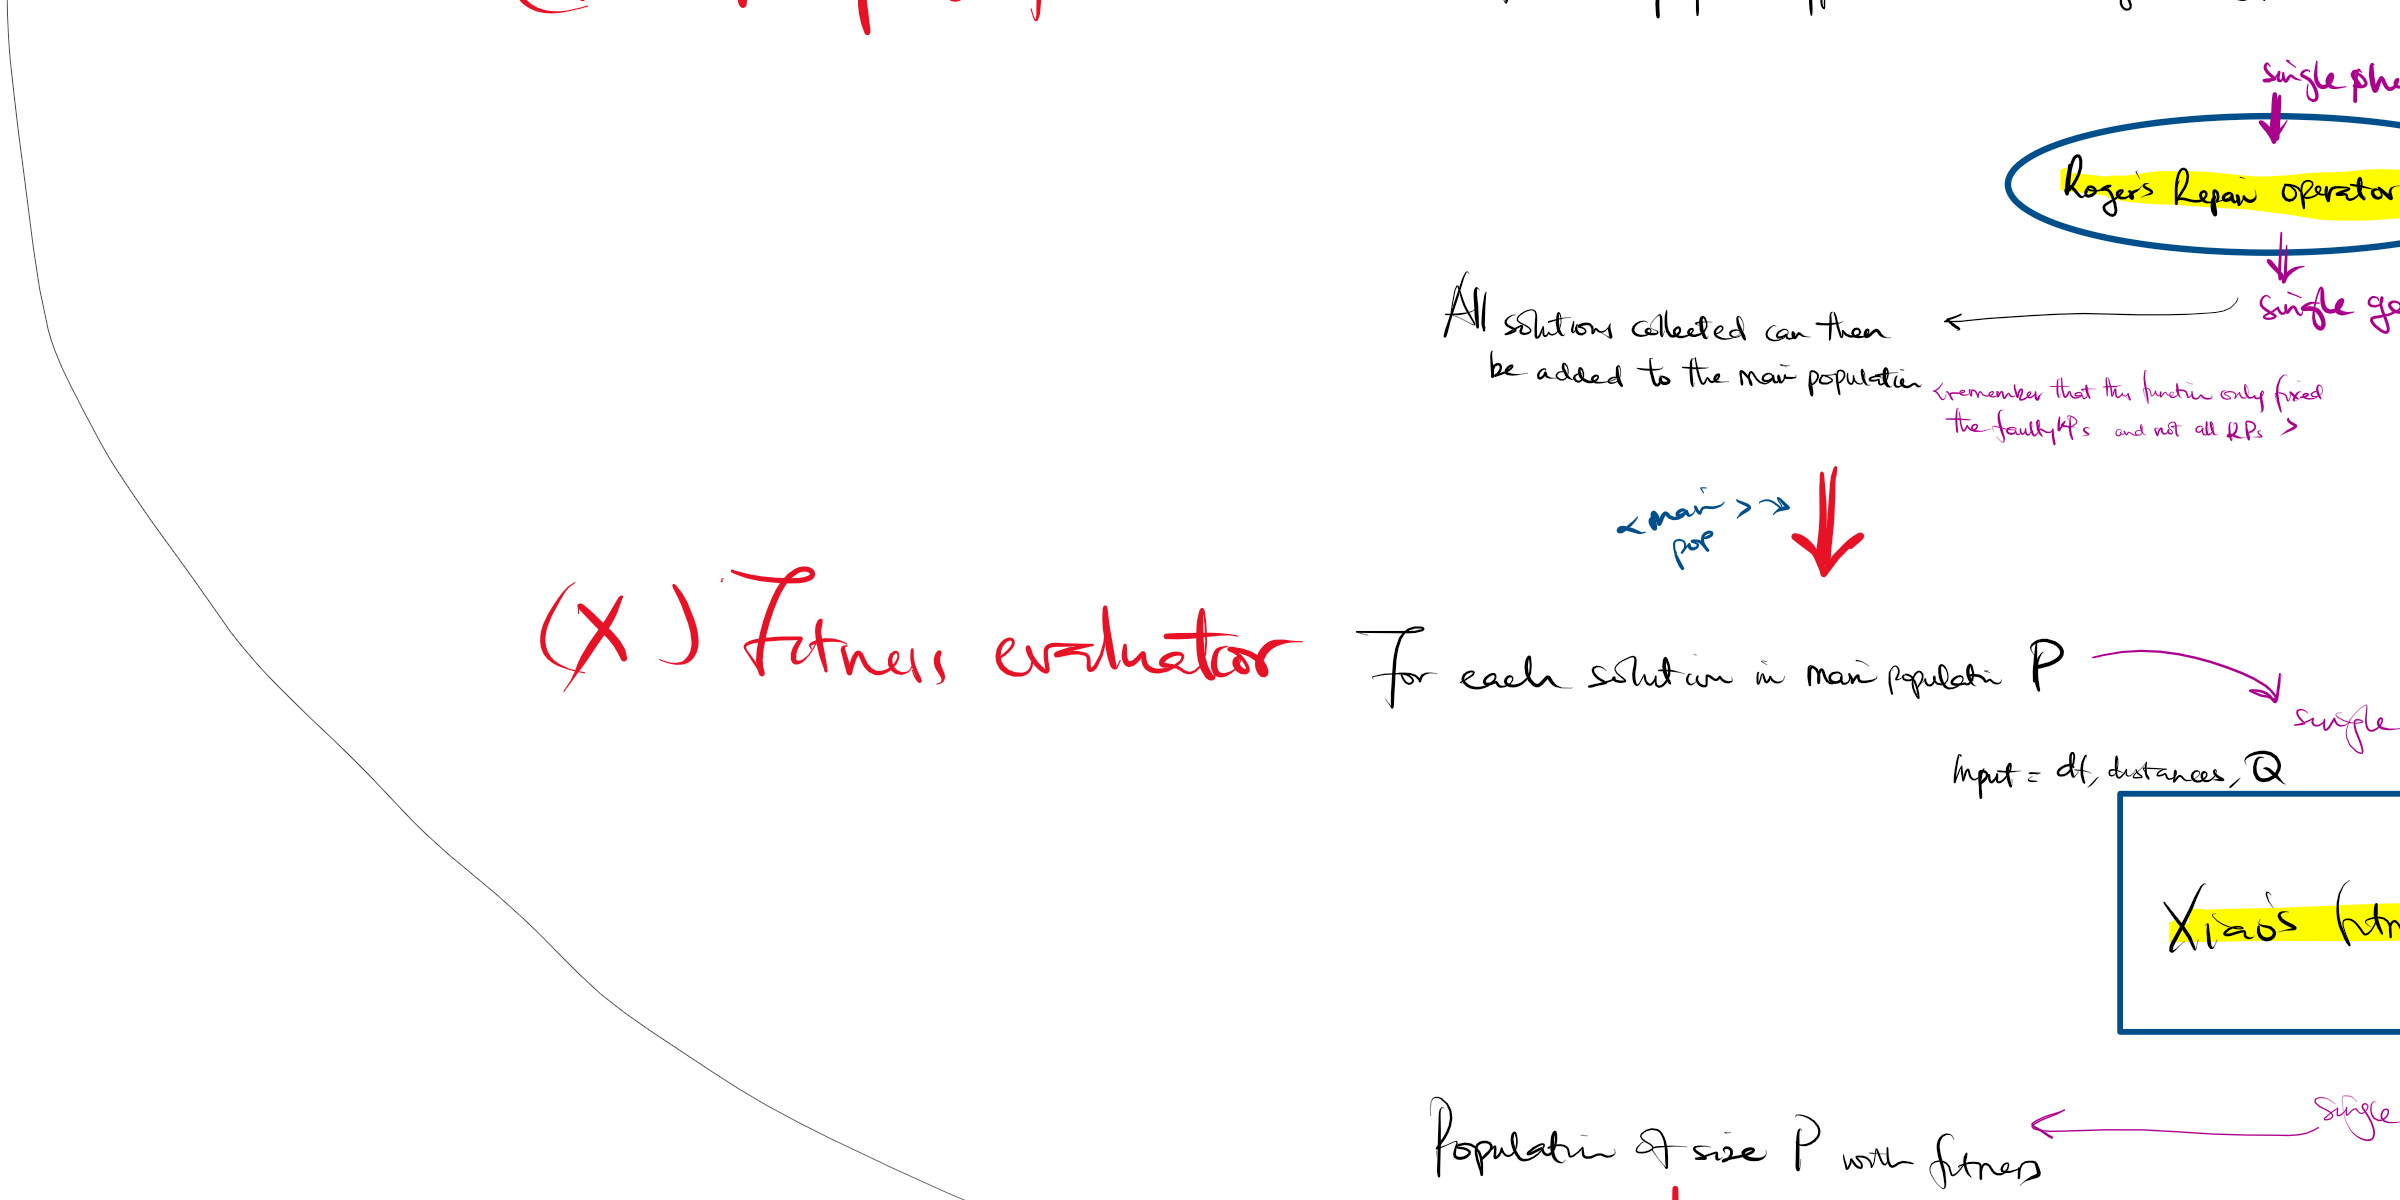 single
Roger's Repair operator
single
All solutions collected can then
be added to the main population
<remember that this function only fixed
the faulty KPs and not all RPs >
<main>
pop
(X) Fitness evaluator
For each solution in main population P
single
Input = df, distances, Q
Xiao's
single
Population of size P with fitness